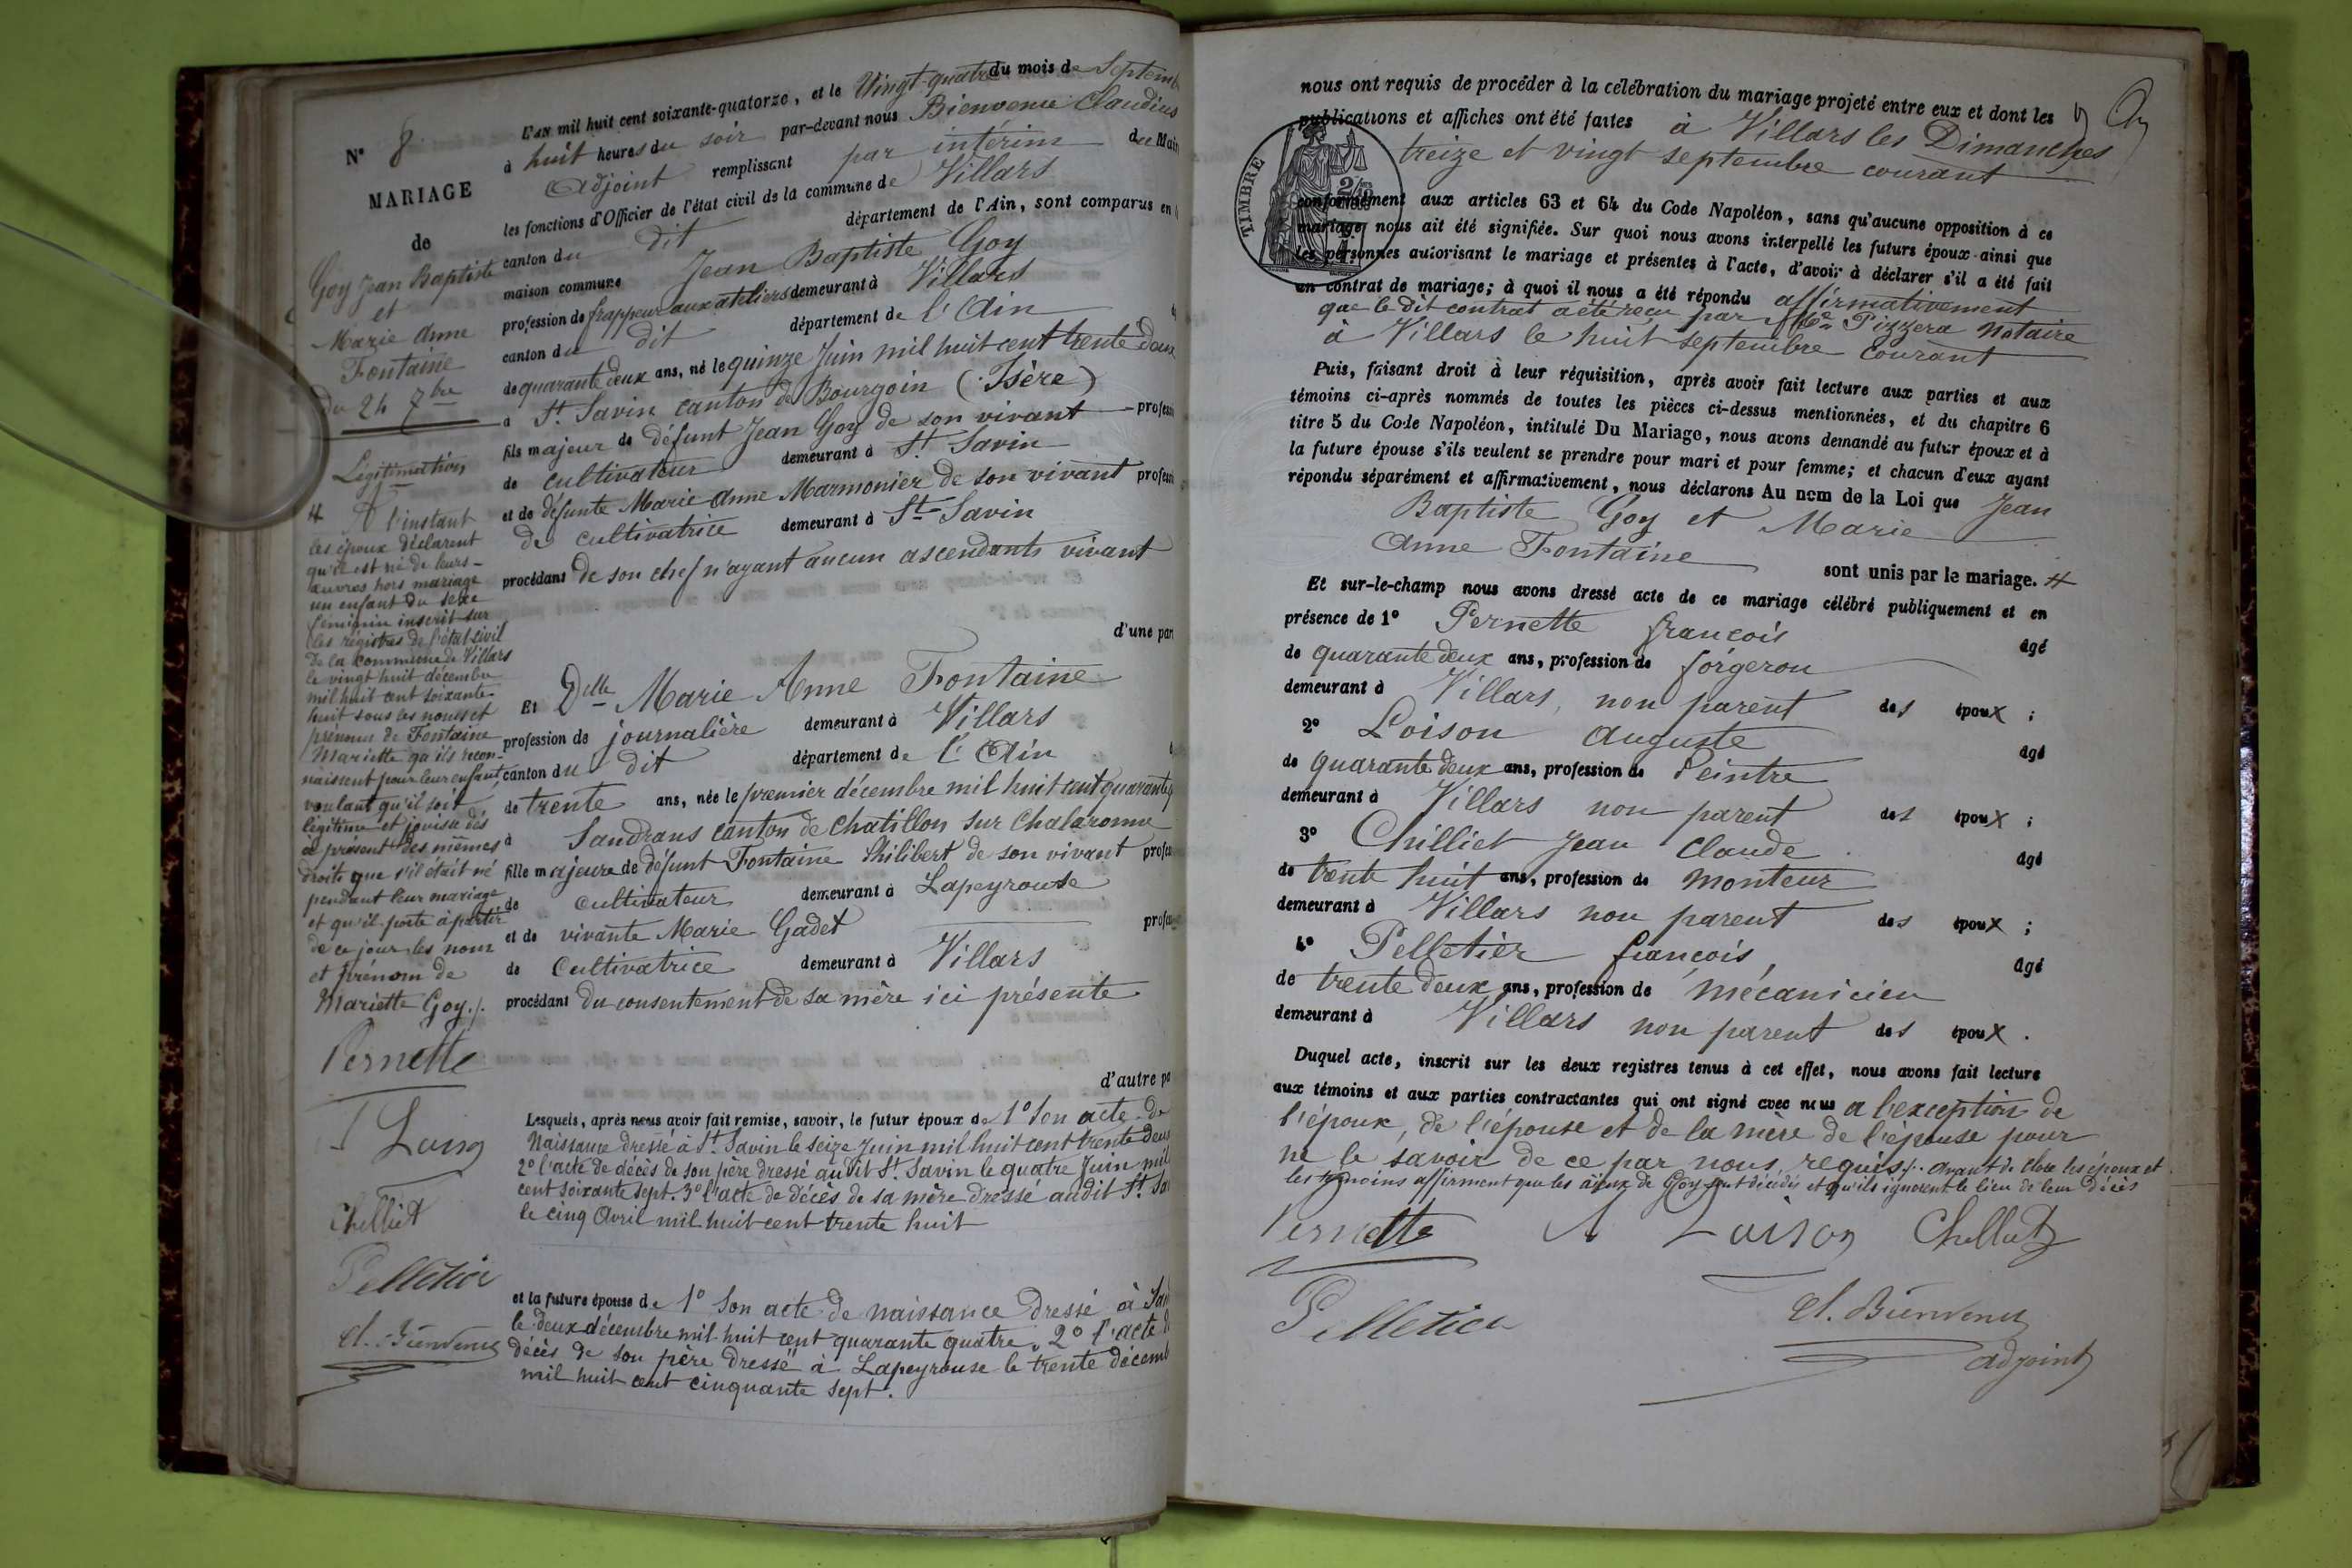 N° 8
MARIAGE
de
Goy Jean Baptiste
et
Marie Anne
Fontaine
Du 24 7bre
Légitimation
A l'instant
les époux déclarent
qu'il est né de leurs
œuvres hors mariage
un enfant du sexe
féminin inscrit sur
les régistres de l'état civil
de la commune de Villars
le vingt huit décembre
mil huit cent soixante
huit sous les noms et
prénoms de Fontaine
Mariette qu'ils recon-
naissent pour leur enfant,
voulant qu'il soit
légitime et jouisse dès
à présent des mêmes
droits que s'il était né
pendant leur mariage
et qu'il porte à partir
de ce jour les nom
et prénom de
Mariette Goy ./.
Pernette
Chilliet
Pelletier
Cl. Bienvenu
L'AN mil huit cent soixante-quatorze, et le Vingt-quatre du mois de Septem
à huit heures du soir par-devant nous Bienvenu Claudius
Adjoint remplissant par intérim du Mair
les fonctions d'Officier de l'état civil de la commune de Villars
canton du dit département de l'Ain, sont comparus en
maison commune Jean Baptiste Goy
profession de frappeur aux ateliers demeurant à Villars
canton du dit département de l'Ain
de quarante deux ans, né le quinze Juin mil huit cent trente deux
à St Savin canton de Bourgoin (Isère)
fils majeur de défunt Jean Goy de son vivant profess
de cultivateur demeurant à St Savin
et de défunte Marie Anne Marmonier de son vivant profess
de cultivatrice demeurant à St Savin
procédant de son chef n'ayant aucun ascendants vivant
d'une par
Et Delle Marie Anne Fontaine
profession de journalière demeurant à Villars
canton du dit département de l'Ain
de trente ans, née le premier décembre mil huit cent quarante
à Sandrans canton de Chatillon sur Chalaronne
fille majeure de défunt Fontaine Philibert de son vivant profes
de cultivateur demeurant à Lapeyrouse
et de vivante Marie Gadet profes
de Cultivatrice demeurant à Villars
procédant du consentement de sa mère ici présente
d'autre pa
Lesquels, après nous avoir fait remise, savoir, le futur époux de 1° son acte de
Naissance dressé à St. Savin le seize Juin mil huit cent trente deux
2° l'acte de décès de son père dressé au dit St Savin le quatre Juin mil
cent soixante sept. 3° l'acte de décès de sa mère dressé audit St Sa
le cinq Avril mil huit cent trente huit
et la future épouse de 1° Son acte de naissance dressé à San
le deux décembre mil huit cent quarante quatre, 2° l'acte d
décès de son père dressé à Lapeyrouse le trente décemb
mil huit cent cinquante sept.
nous ont requis de procéder à la célébration du mariage projeté entre eux et dont les
publications et affiches ont été faites à Villars les Dimanches
treize et vingt septembre courant
TIMBRE
conformément aux articles 63 et 64 du Code Napoléon, sans qu'aucune opposition à ce
mariage nous ait été signifiée. Sur quoi nous avons interpellé les futurs époux ainsi que
les personnes autorisant le mariage et présentes à l'acte, d'avoir à déclarer s'il a été fait
un contrat de mariage; à quoi il nous a été répondu affirmativement
que le dit contrat a été reçu par Me Pizzera Notaire
à Villars le huit septembre courant
Puis, faisant droit à leur réquisition, après avoir fait lecture aux parties et aux
témoins ci-après nommés de toutes les pièces ci-dessus mentionnées, et du chapitre 6
titre 5 du Code Napoléon, intitulé Du Mariage, nous avons demandé au futur époux et à
la future épouse s'ils veulent se prendre pour mari et pour femme; et chacun d'eux ayant
répondu séparément et affirmativement, nous déclarons Au nom de la Loi que Jean
Baptiste Goy et Marie
Anne Fontaine
sont unis par le mariage.
Et sur-le-champ nous avons dressé acte de ce mariage célébré publiquement et en
présence de 1° Pernette françois âgé
de quarante deux ans, profession de forgeron
demeurant à Villars, non parent des époux ;
2° Loison Auguste âgé
de quarante deux ans, profession de Peintre
demeurant à Villars non parent des époux ;
3° Chilliet Jean Claude âgé
de trente huit ans, profession de Monteur
demeurant à Villars non parent des époux ;
4° Pelletier françois, âgé
de trente deux ans, profession de mécanicien
demeurant à Villars non parent des époux .
Duquel acte, inscrit sur les deux registres tenus à cet effet, nous avons fait lecture
aux témoins et aux parties contractantes qui ont signé avec nous à l'exception de
l'époux, de l'épouse et de la mère de l'épouse pour
ne le savoir de ce par nous requis ./. Avant de clore les époux et
les témoins affirment que les aieux de Goy sont décédés et qu'ils ignorent le lieu de leur décès
Pernette A Loison Chilliet
Pelletier Cl. Bienvenu
adjoint